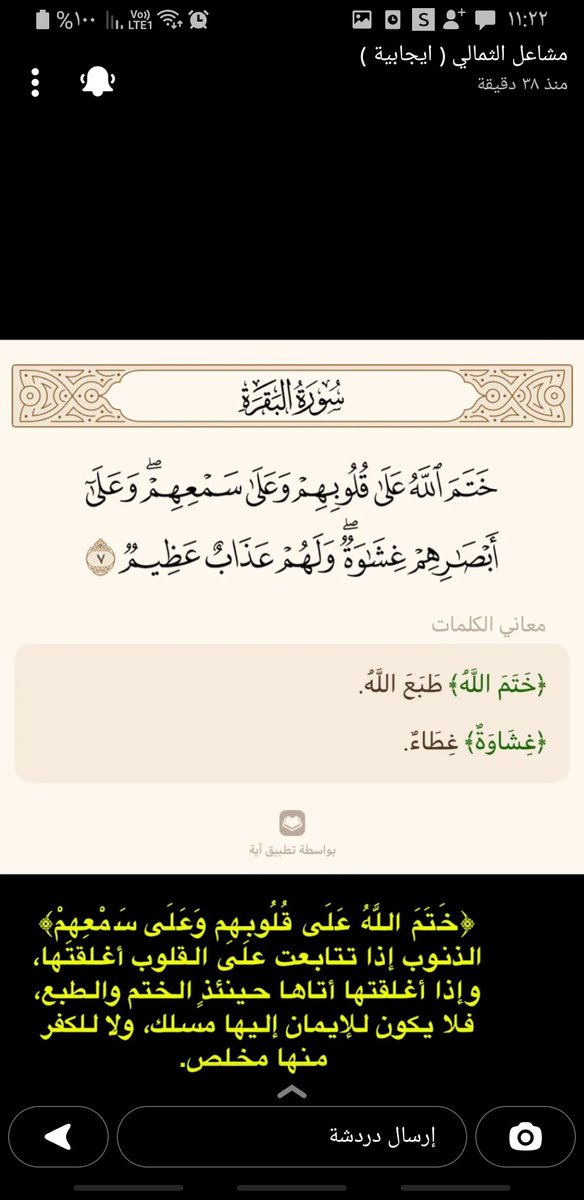 ١١:٢٢
%١٠٠
Vo))
LTE1
S
مشاعل الثمالي ( ايجابية )
منذ ٣٨ دقيقة
سُورَةُ البَقَرَةِ
خَتَمَ ٱللَّهُ عَلَىٰ قُلُوبِهِمْ وَعَلَىٰ سَمْعِهِمْۖ وَعَلَىٰٓ
أَبْصَٰرِهِمْ غِشَٰوَةٌۖ وَلَهُمْ عَذَابٌ عَظِيمٌ ٧
معاني الكلمات
﴿خَتَمَ اللَّهُ﴾ طَبَعَ اللَّهُ.
﴿غِشَاوَةٌ﴾ غِطَاءٌ.
بواسطة تطبيق آية
﴿خَتَمَ اللَّهُ عَلَى قُلُوبِهِم وَعَلَى سَمْعِهِمْ﴾
الذنوب إذا تتابعت على القلوب أغلقتها،
وإذا أغلقتها أتاها حينئذٍ الختم والطبع،
فلا يكون للإيمان إليها مسلك، ولا للكفر
منها مخلص.
إرسال دردشة